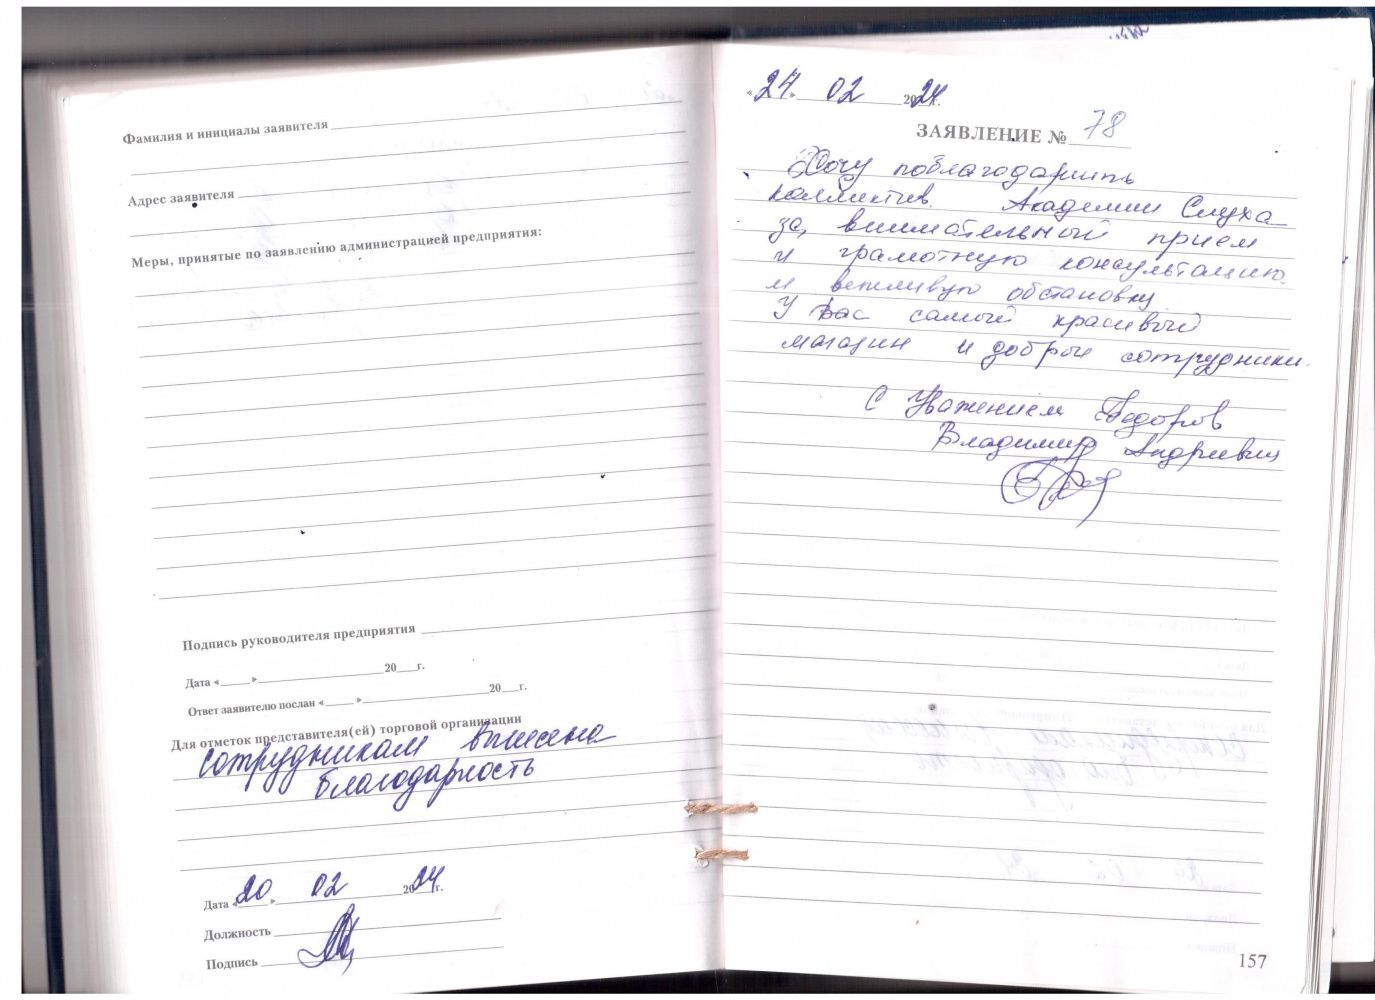 Фамилия и инициалы заявителя
Адрес заявителя
Меры, принятые по заявлению администрацией предприятия:
Подпись руководителя предприятия
Дата «___»___20___г.
Ответ заявителю послан «___»___20___г.
Для отметок представителя(ей) торговой организации
Сотрудникам вынесена
Благодарность
Дата «20» 02 2024г.
Должность
Подпись
«24» 02 2024г.
ЗАЯВЛЕНИЕ № 78
Хочу поблагодарить
коллектив Академии Слуха
за внимательный прием
и грамотную консультацию
и вежливую обстановку.
У Вас самый красивый
магазин и добрые сотрудники.
С Уважением Федоров
Владимир Андреевич
157